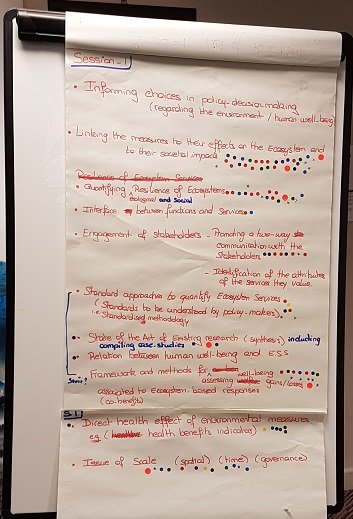 Session - 1
• Informing choices in policy-decision-making
(regarding the environment / human well-being)
• Linking the measures to their effects on the Ecosystem and
to their societal impact
Resilience of Ecosystem Services
• Quantifying Resilience of Ecosystems
ecological and Social
• Interface between functions and services
• Engagement of stakeholders - Promoting a two-way
communication with the
stakeholders
- Identification of the attributes
of the services they value.
• Standard approaches to quantify Ecosystem Services
(Standards to be understood by policy-makers)
i.e. Standardised methodology
• State of the Art of Existing research (synthesis) including
compiling case-studies
• Relation between human well-being and E.S.S
• Framework and methods for well-being
assessing gains/losses
associated to Ecosystem-based responses
(co-benefits)
S1
• Direct health effect of environmental measures
e.g. (health benefits indicators)
• Issue of Scale (spatial) (time) (governance)